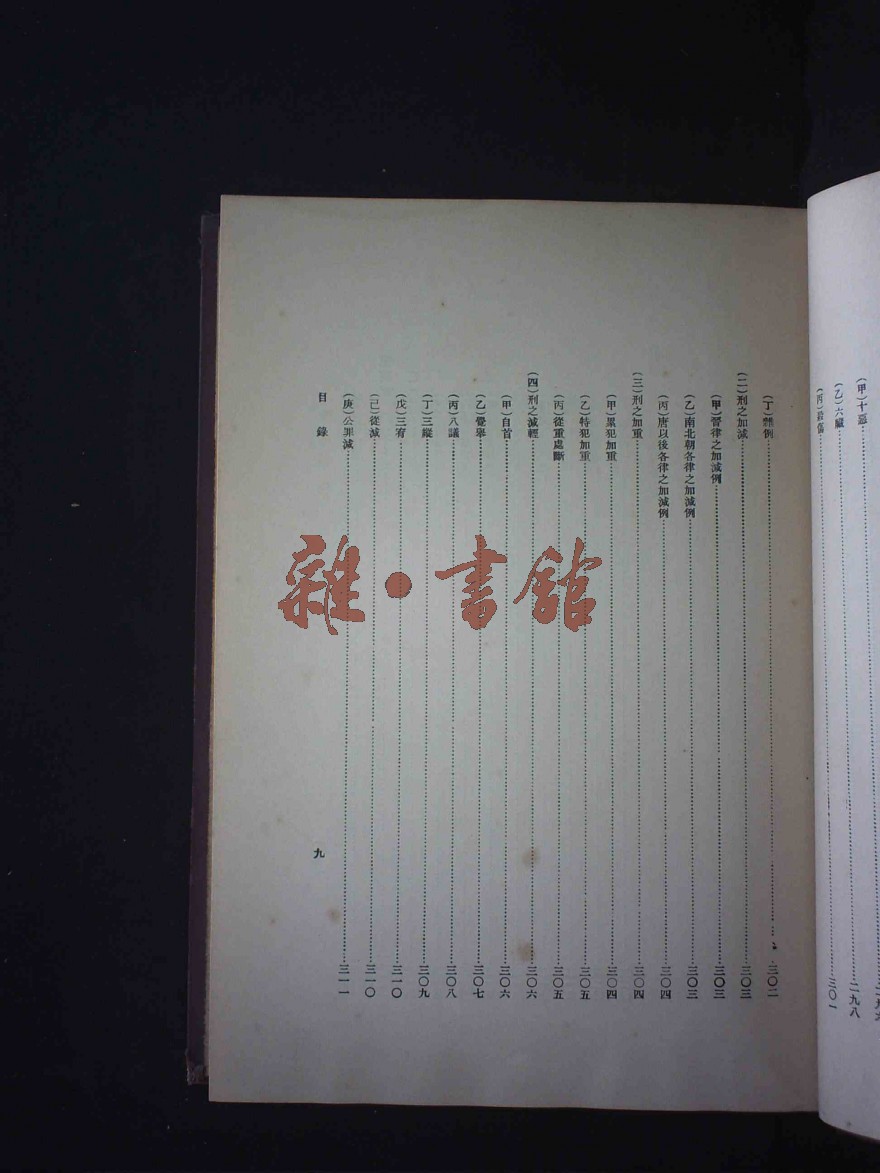 (甲)十惡
(乙)六贓……二九八
(丙)殺傷……三〇一
(丁)雜例……三〇二
(二)刑之加減……三〇三
(甲)晉律之加減例……三〇三
(乙)南北朝各律之加減例……三〇三
(丙)唐以後各律之加減例……三〇四
(三)刑之加重……三〇四
(甲)累犯加重……三〇四
(乙)特犯加重……三〇五
(丙)從重處斷……三〇五
(四)刑之減輕……三〇六
(甲)自首……三〇六
(乙)覺舉……三〇七
(丙)八議……三〇八
(丁)三縱……三〇九
(戊)三宥……三一〇
(己)從減……三一〇
(庚)公罪減……三一一
目錄
九
雜·書館